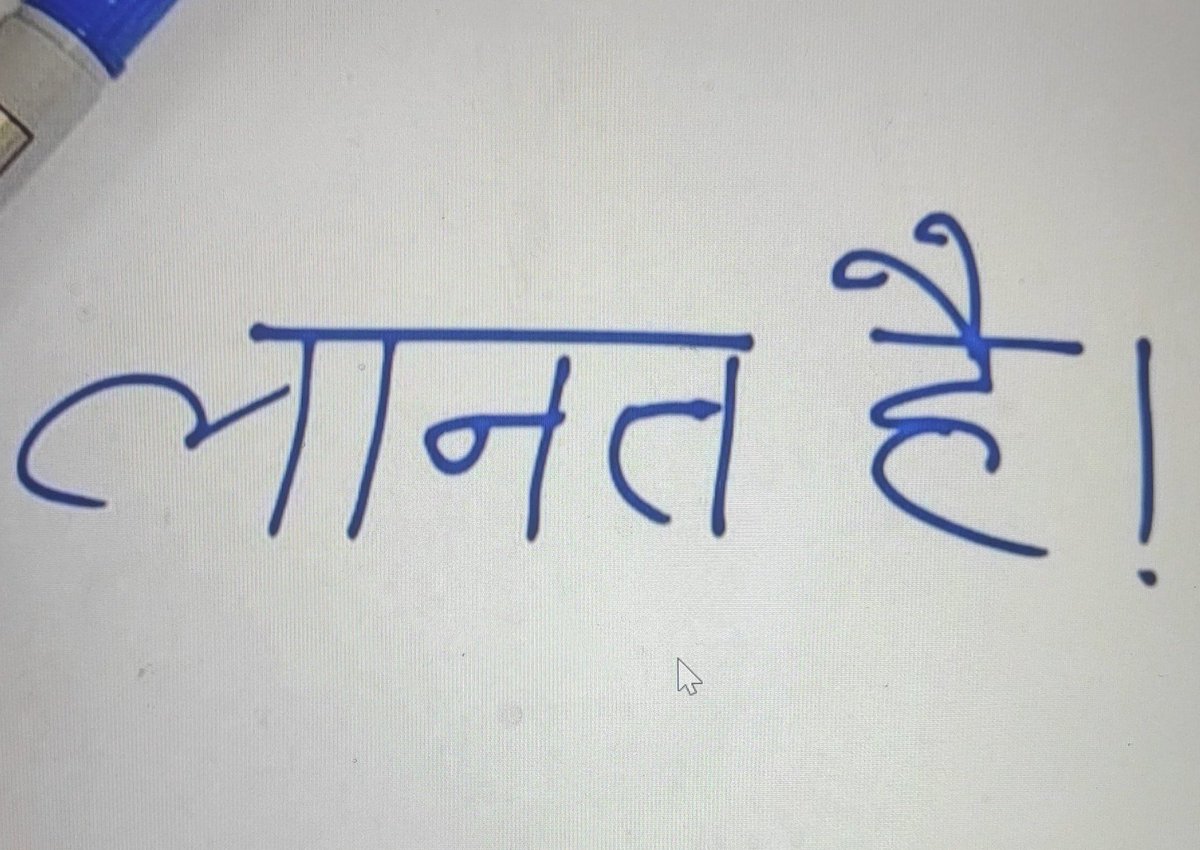 लानत है!